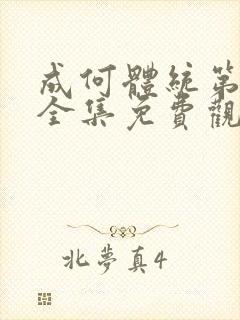 成何體統第
全集免費觀
北夢真4